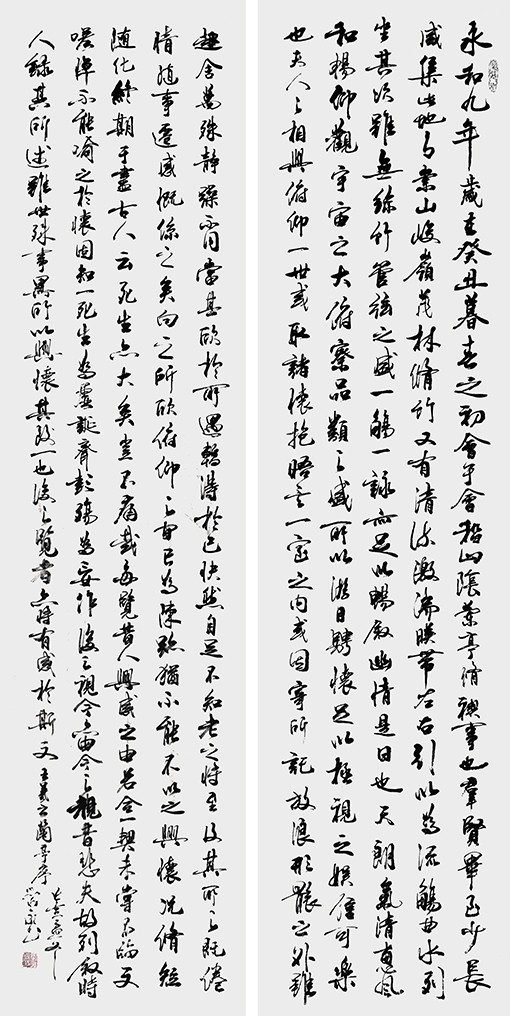 永和九年歲在癸丑暮春之初會于會稽山陰蘭亭脩禊事也羣賢畢至少長
咸集此地有崇山峻嶺茂林脩竹又有清流激湍映帶左右引以為流觴曲水列
坐其次雖無絲竹管弦之盛一觴一詠亦足以暢敘幽情是日也天朗氣清惠風
和暢仰觀宇宙之大俯察品類之盛所以遊目騁懷足以極視之娛信可樂
也夫人之相與俯仰一世或取諸懷抱晤言一室之內或因寄所託放浪形骸之外雖
趣舍萬殊靜躁不同當其欣於所遇暫得於己快然自足不知老之將至及其所之既倦
情隨事遷感慨係之矣向之所欣俯仰之間已為陳跡猶不能不以之興懷況脩短
隨化終期于盡古人云死生亦大矣豈不痛哉每覽昔人興感之由若合一契未嘗不臨文
嗟悼不能喻之於懷固知一死生為虛誕齊彭殤為妄作後之視今亦由今之視昔悲夫故列敘時
人錄其所述雖世殊事異所以興懷其致一也後之覽者亦將有感於斯文 王羲之蘭亭序